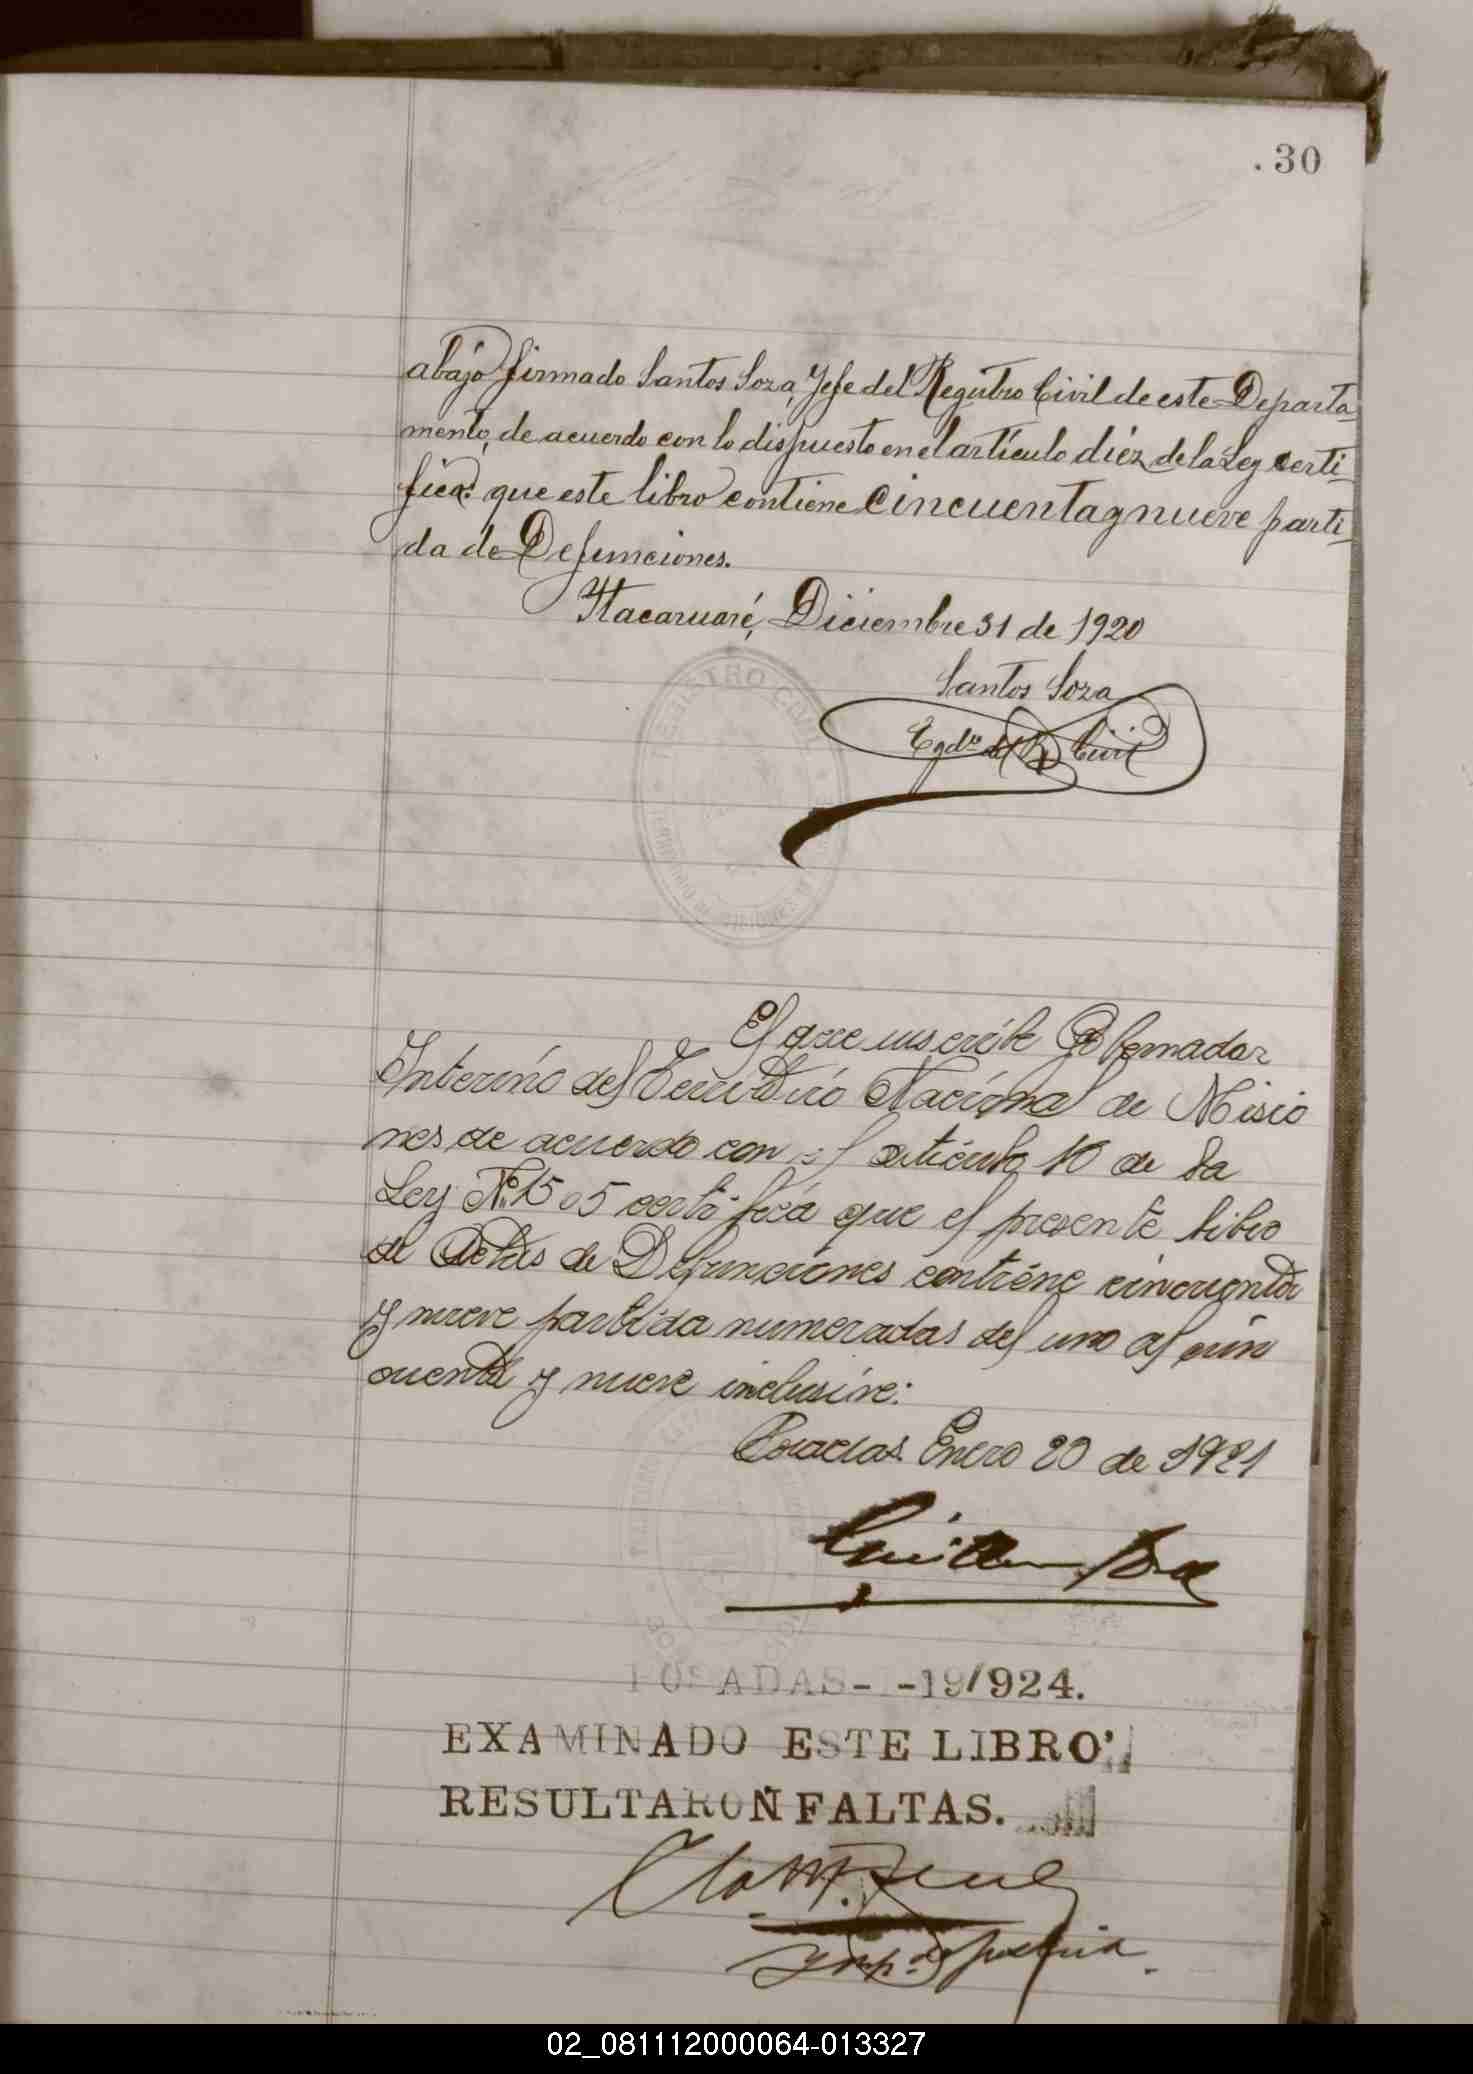 . 30
abajo firmado Santos Soza, Jefe del Registro Civil de este Departa
mento, de acuerdo con lo dispuesto en el artículo diéz de la Ley certi-
fica: que este libro contiene cincuenta y nueve parti-
da de Defunciones.
Itacaruaré, Diciembre 31 de 1920
Santos Soza
Egdo. del R. Civil
REGISTRO CIVIL
El que suscribe Gobernador
Interino del Territorio Nacional de Misio
nes de acuerdo con el artículo 10 de la
Ley No. 1505 certifica que el presente libro
de Actas de Defunciones contiene cincuenta
y nueve partida numeradas del uno al cin
cuenta y nueve inclusive:
Posadas Enero 20 de 1921
POSADAS- -19/924.
EXAMINADO ESTE LIBRO
RESULTARON FALTAS.
Insp. de Justicia.
02_081112000064-013327